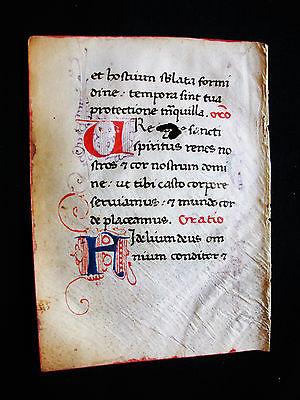 et hostium sblata formi
dine: tempora sint tua
protectione trãquilla. orõ
URe sancti
spiritus renes no
stros & cor nostrum domi
ne: ut tibi casto corpore
seruiamus: & mundo cor
de placeamus. Oratio
Fidelium deus om
nium conditor &